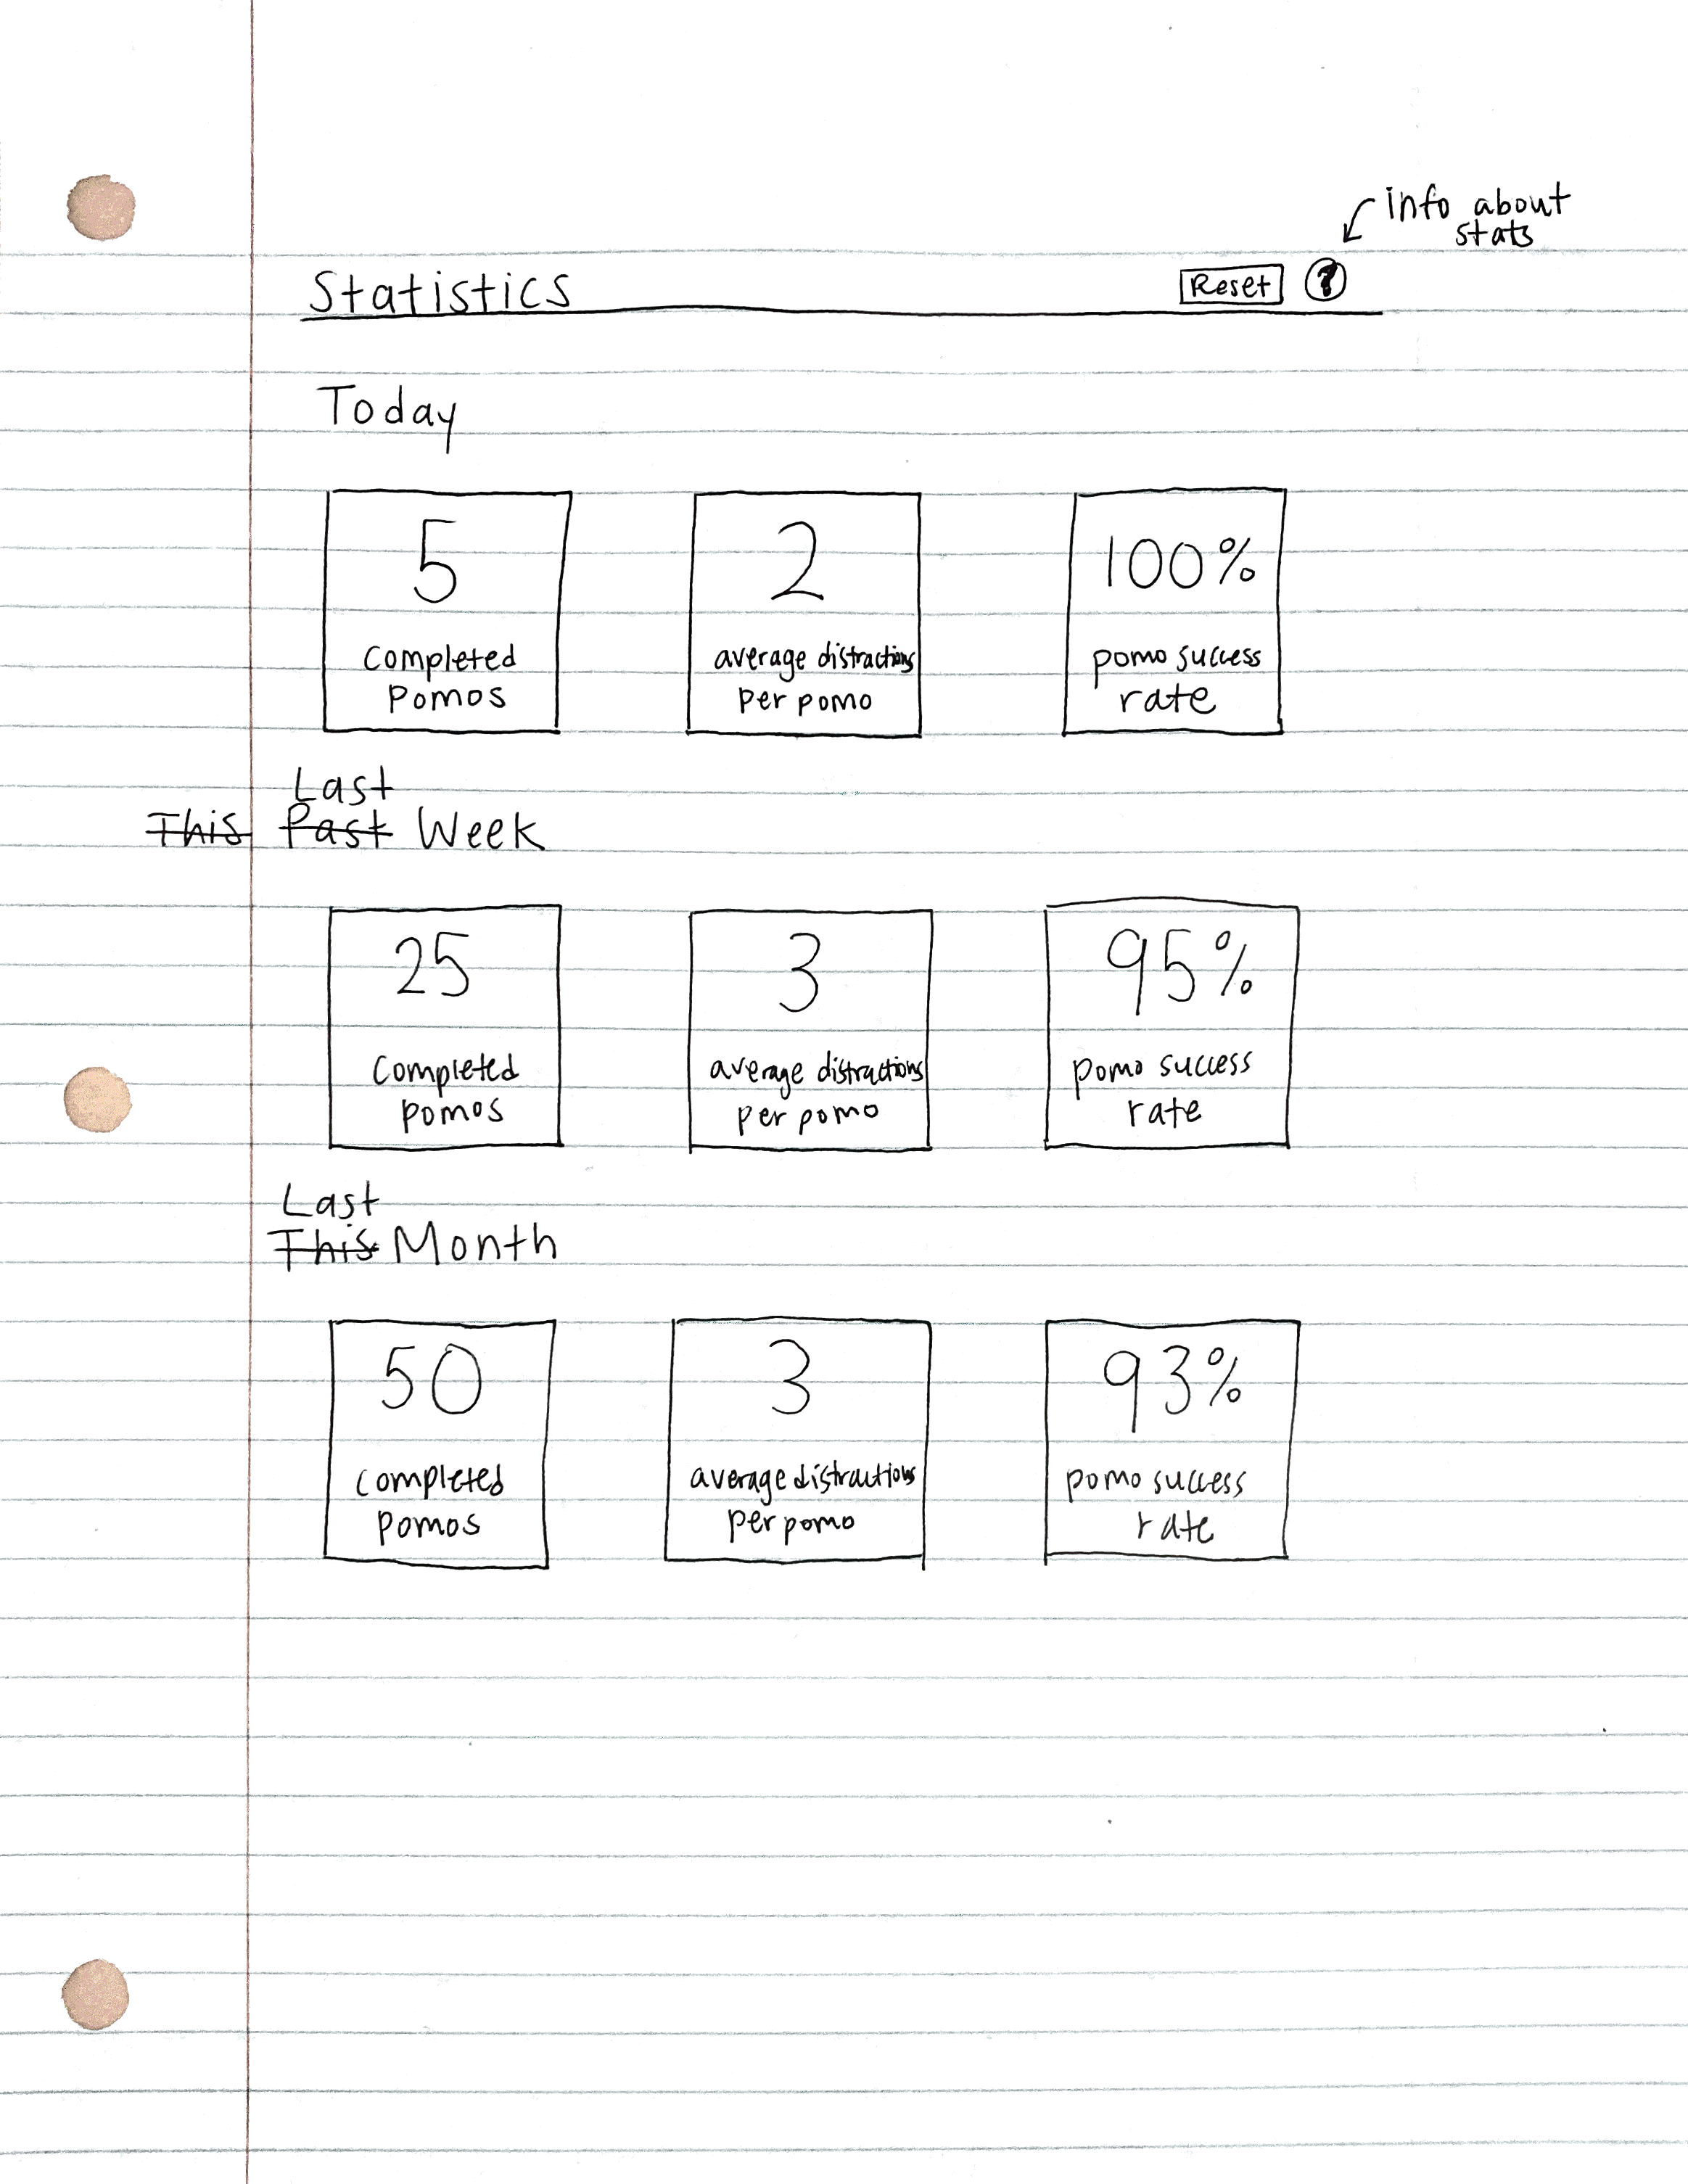 info about
stats
Statistics
Reset ?
Today
5
completed
pomos
2
average distractions
per pomo
100%
pomo success
rate
Last
This Past Week
25
completed
pomos
3
average distractions
per pomo
95%
pomo success
rate
Last
This Month
50
completed
pomos
3
average distractions
per pomo
93%
pomo success
rate